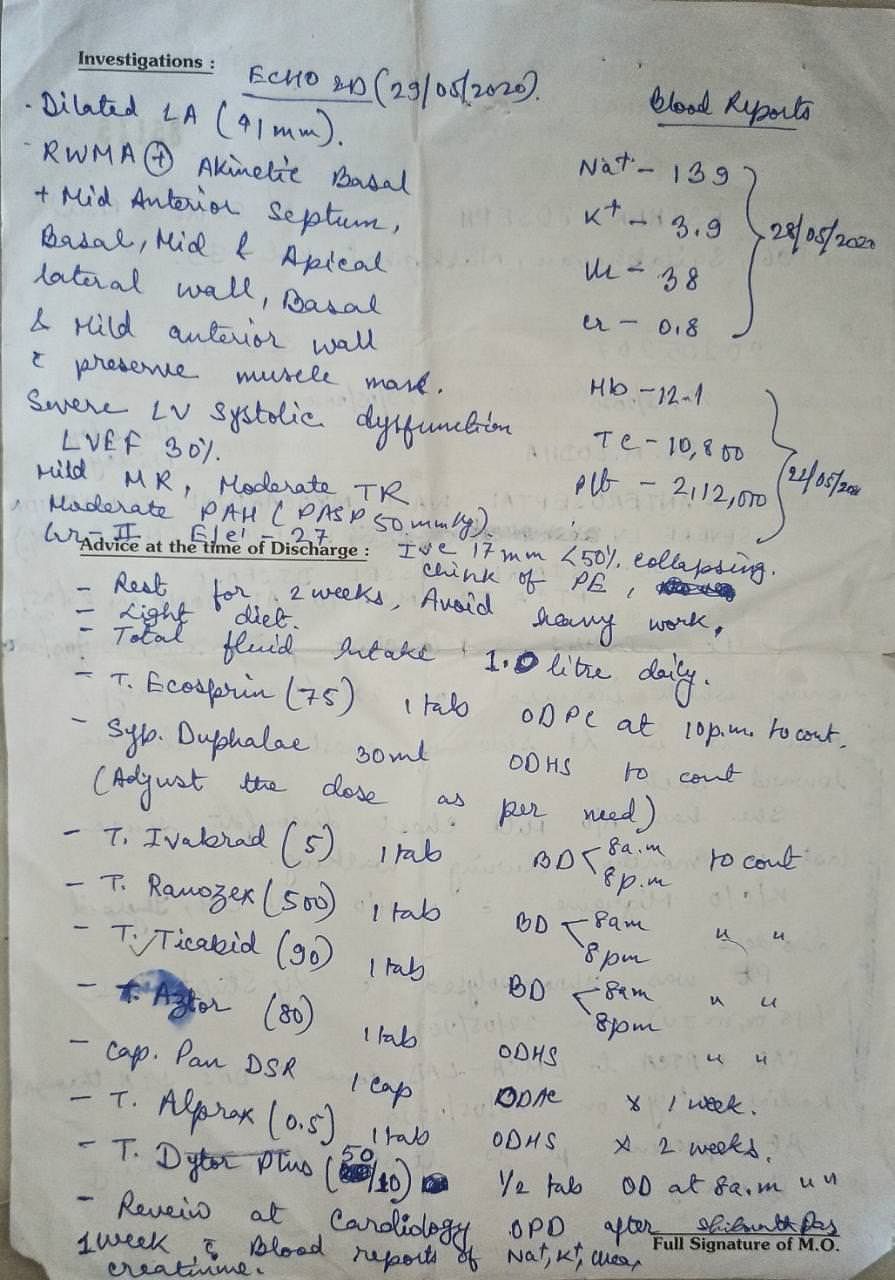 Investigations :
ECHO 2D (29/05/2020).
- Dilated LA (41mm).
- RWMA ⊕ Akinetic Basal
+ Mid Anterior Septum,
Basal, Mid & Apical
lateral wall, Basal
& Mild anterior wall
c̄ preserve muscle mass.
Severe LV Systolic dysfunction
LVEF 30%.
Mild MR, Moderate TR
Moderate PAH (PASP 50 mmHg)
Gr-II E/e' - 27
IVC 17mm <50% collapsing.
chink of PE,
Blood Reports
Na+ - 139
K+ - 3.9
Ur - 38
cr - 0.8
28/05/2020
Hb - 12.1
TC - 10,800
Plt - 2,12,000
Advice at the time of Discharge :
- Rest for 2 weeks, Avoid heavy work,
- Light diet.
- Total fluid Intake 1.0 litre daily.
- T. Ecosprin (75) 1 tab ODPC at 10p.m. to cont.
- Syp. Duphalac 30ml ODHS to cont
(Adjust the dose as per need)
- T. Ivabrad (5) 1 tab BD < 8a.m 8p.m to cont
- T. Ranozex (500) 1 tab BD < 8am 8pm " "
- T. Ticabid (90) 1 tab BD < 8am 8pm " "
- T. Aztor (80) 1 tab ODHS " "
- Cap. Pan DSR 1 cap ODAC x 1 week.
- T. Alprax (0.5) 1 tab ODHS x 2 weeks.
- T. Dytor Plus (50/10) 1/2 tab OD at 8a.m " "
- Reveiw at Cardiology OPD after
1 week c̄ Blood reports of Na+, K+, urea,
creatinine.
Full Signature of M.O.